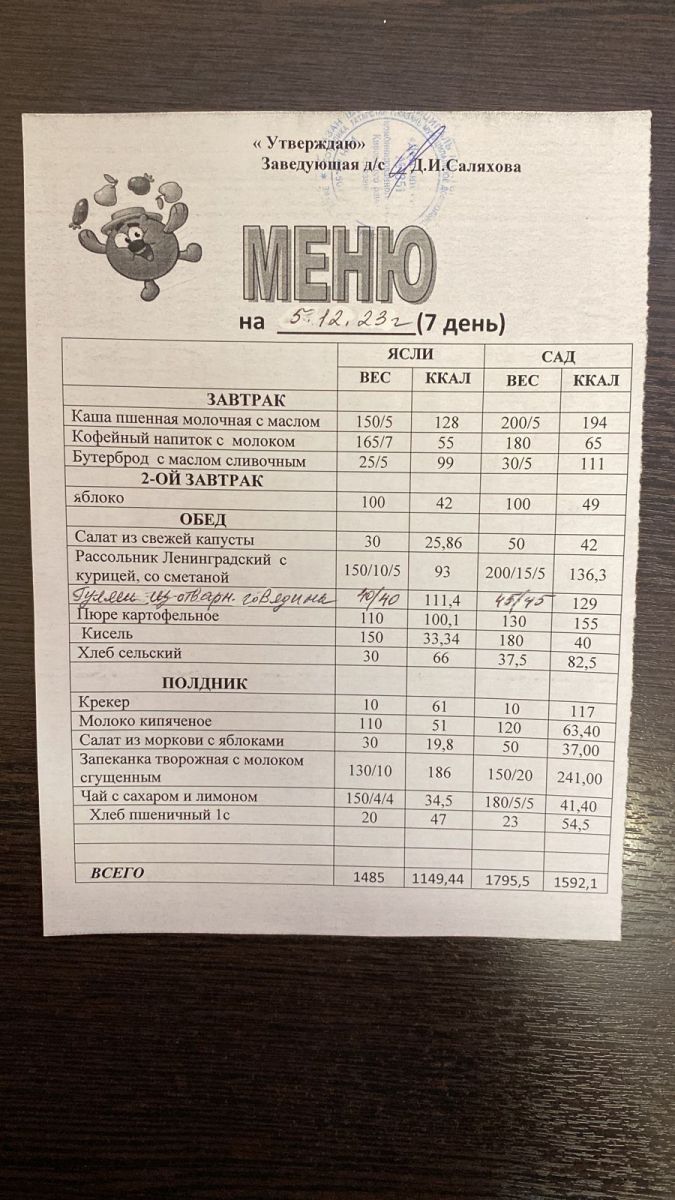 « Утверждаю»
Заведующая д/с Д.И.Саляхова
МЕНЮ
на 5.12.23г (7 день)
ЯСЛИ САД
ВЕС ККАЛ ВЕС ККАЛ
ЗАВТРАК
Каша пшенная молочная с маслом 150/5 128 200/5 194
Кофейный напиток с молоком 165/7 55 180 65
Бутерброд с маслом сливочным 25/5 99 30/5 111
2-ОЙ ЗАВТРАК
яблоко 100 42 100 49
ОБЕД
Салат из свежей капусты 30 25,86 50 42
Рассольник Ленинградский с
курицей, со сметаной 150/10/5 93 200/15/5 136,3
Гуляш из отварн. говядина 40/40 111,4 45/45 129
Пюре картофельное 110 100,1 130 155
Кисель 150 33,34 180 40
Хлеб сельский 30 66 37,5 82,5
ПОЛДНИК
Крекер 10 61 10 117
Молоко кипяченое 110 51 120 63,40
Салат из моркови с яблоками 30 19,8 50 37,00
Запеканка творожная с молоком
сгущенным 130/10 186 150/20 241,00
Чай с сахаром и лимоном 150/4/4 34,5 180/5/5 41,40
Хлеб пшеничный 1с 20 47 23 54,5
ВСЕГО 1485 1149,44 1795,5 1592,1